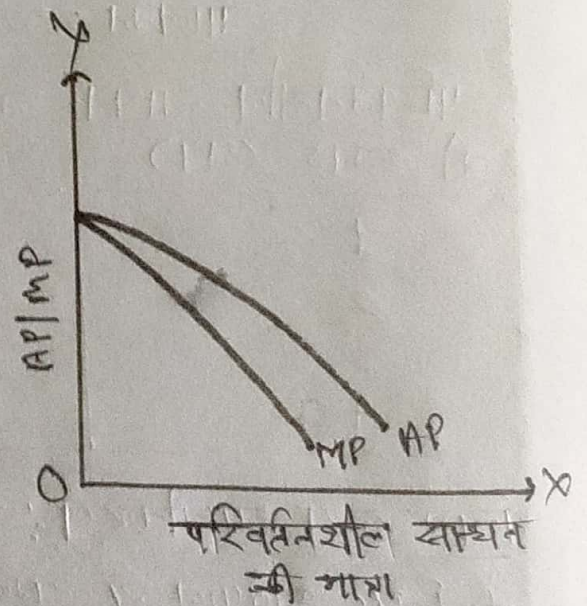 Y
AP/MP
MP
AP
O
X
परिवर्तनशील साधन
की मात्रा